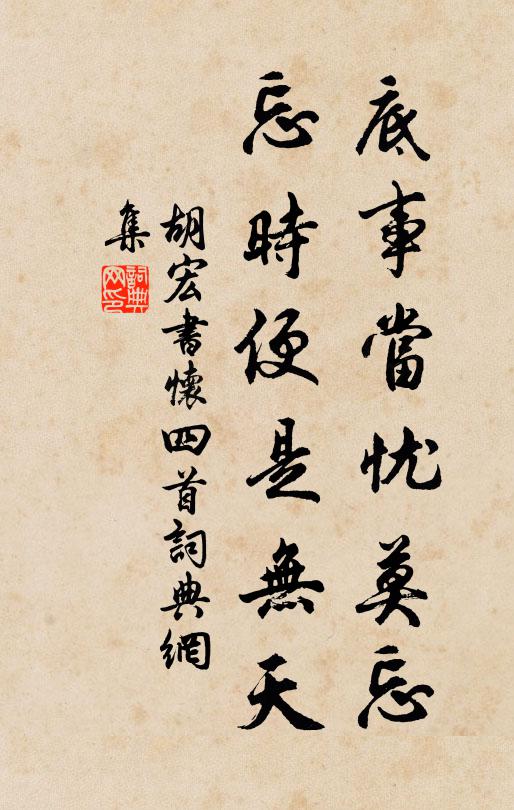 底事當忧莫忘
忘時便是無天
胡宏書懷四首詞典網
集
詞典
网印